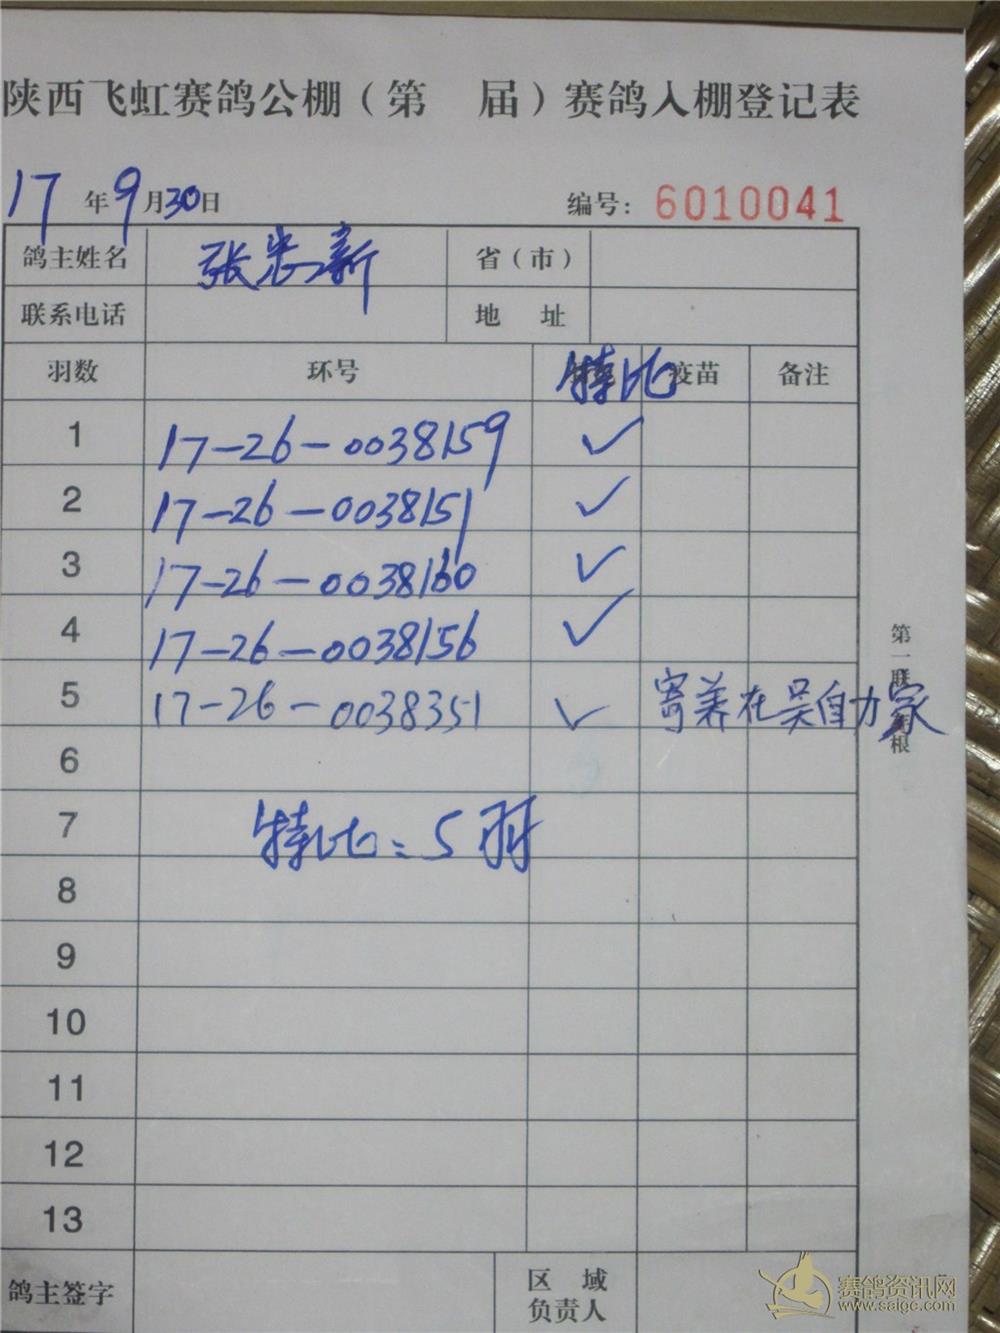 陕西飞虹赛鸽公棚（第　届）赛鸽入棚登记表
17年9月30日　编号：6010041
鸽主姓名　张忠新　省（市）
联系电话　地　址
羽数　环号　特比　疫苗　备注
1　17-26-0038159　✓
2　17-26-0038151　✓
3　17-26-0038160　✓
4　17-26-0038156　✓
5　17-26-0038351　✓　寄养在吴自力家
6
7　特比：5羽
8
9
10
11
12
13
鸽主签字　区　域
负责人
第一联　根
赛鸽资讯网
www.saigc.com